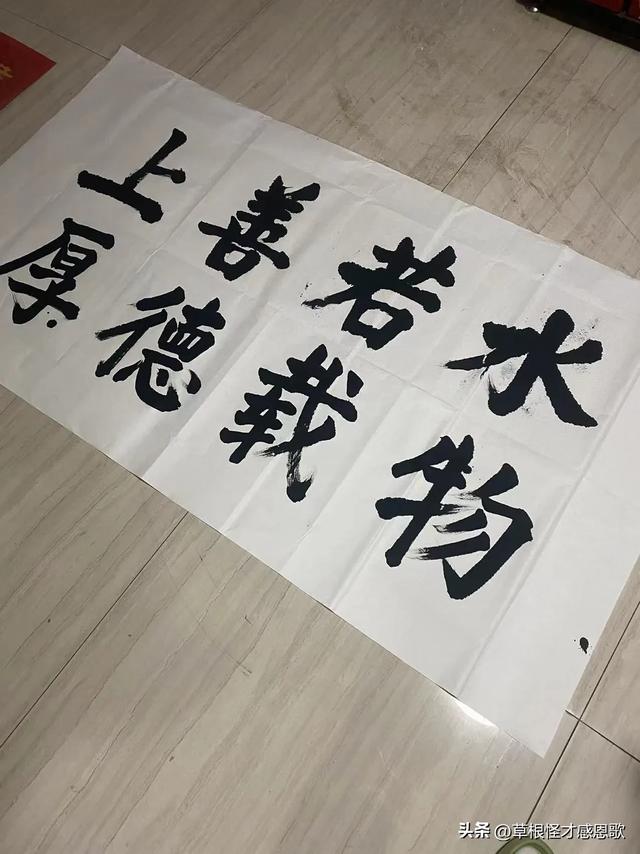 上善若水
厚德载物
头条 @草根怪才感恩歌